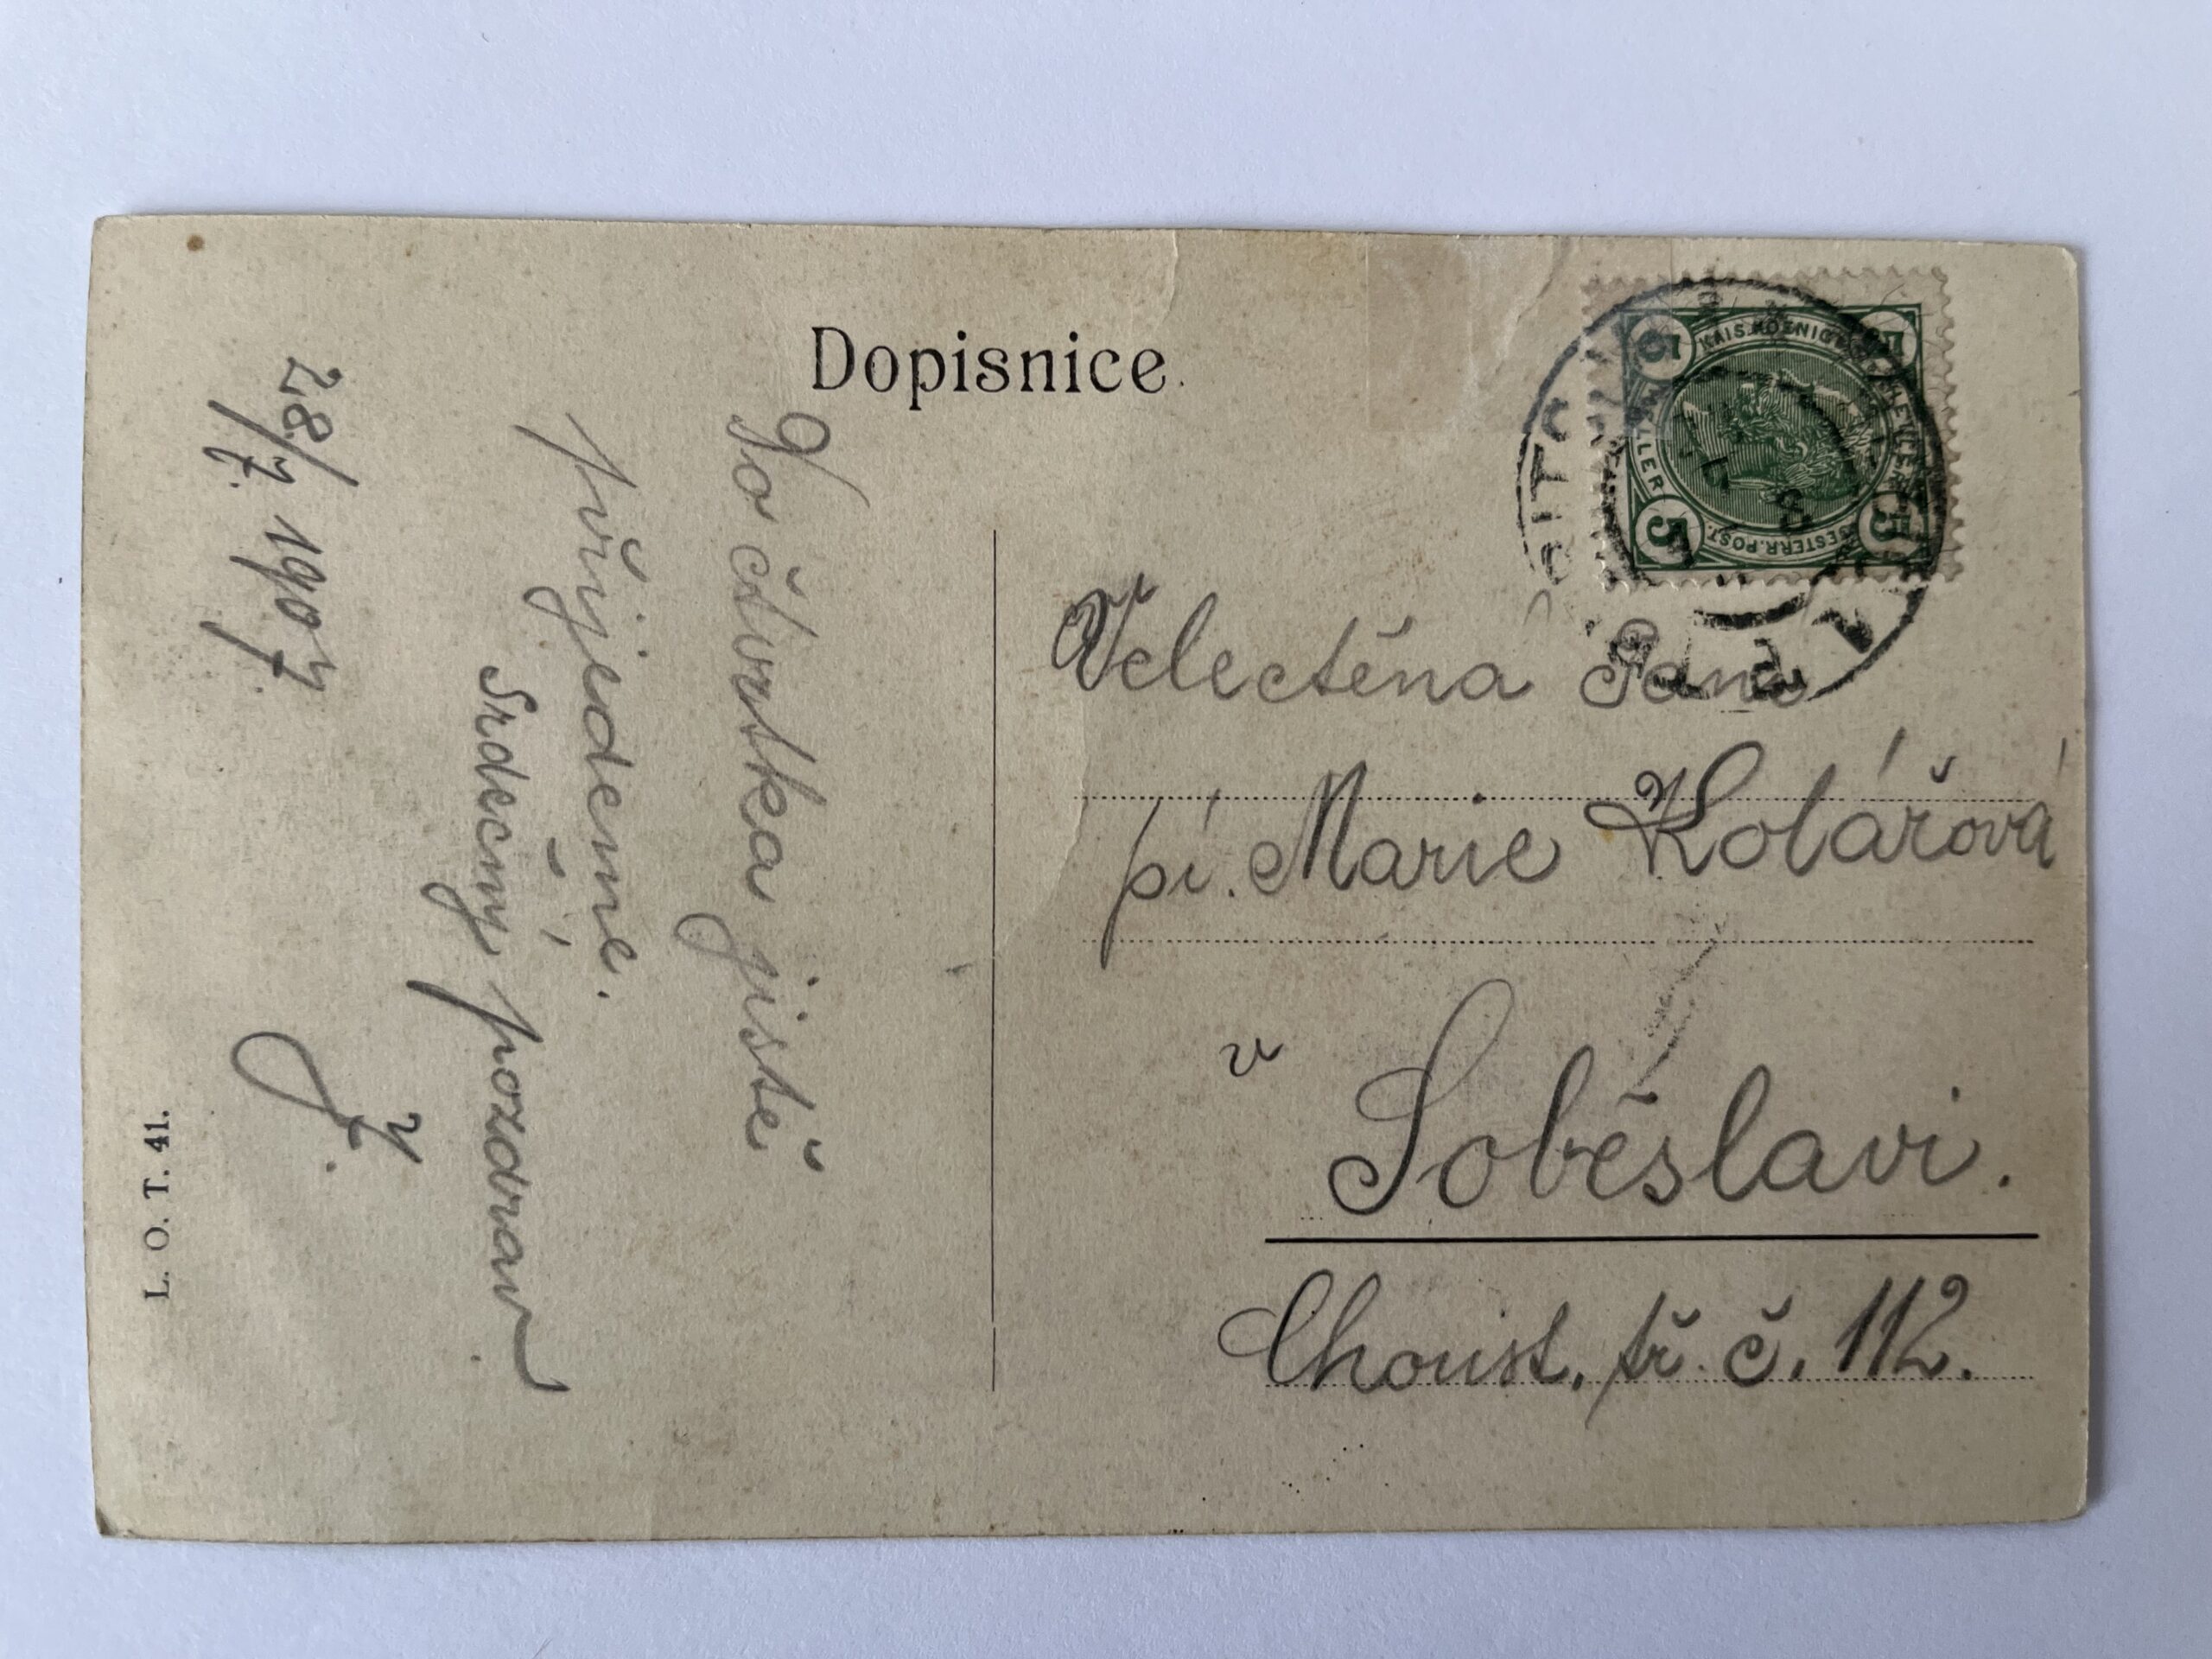 Dopisnice
Do čtvrtka jistě
přijedeme.
Srdečný pozdrav
J.
28/7. 1907
L. O. T. 41.
KAIS. KOENIGL.
OESTERR. POST.
HELLER
5 5
5 5
Velectěná Paní
pí. Marie Kolářová
v
Soběslavi.
Choust. tř. č. 112.